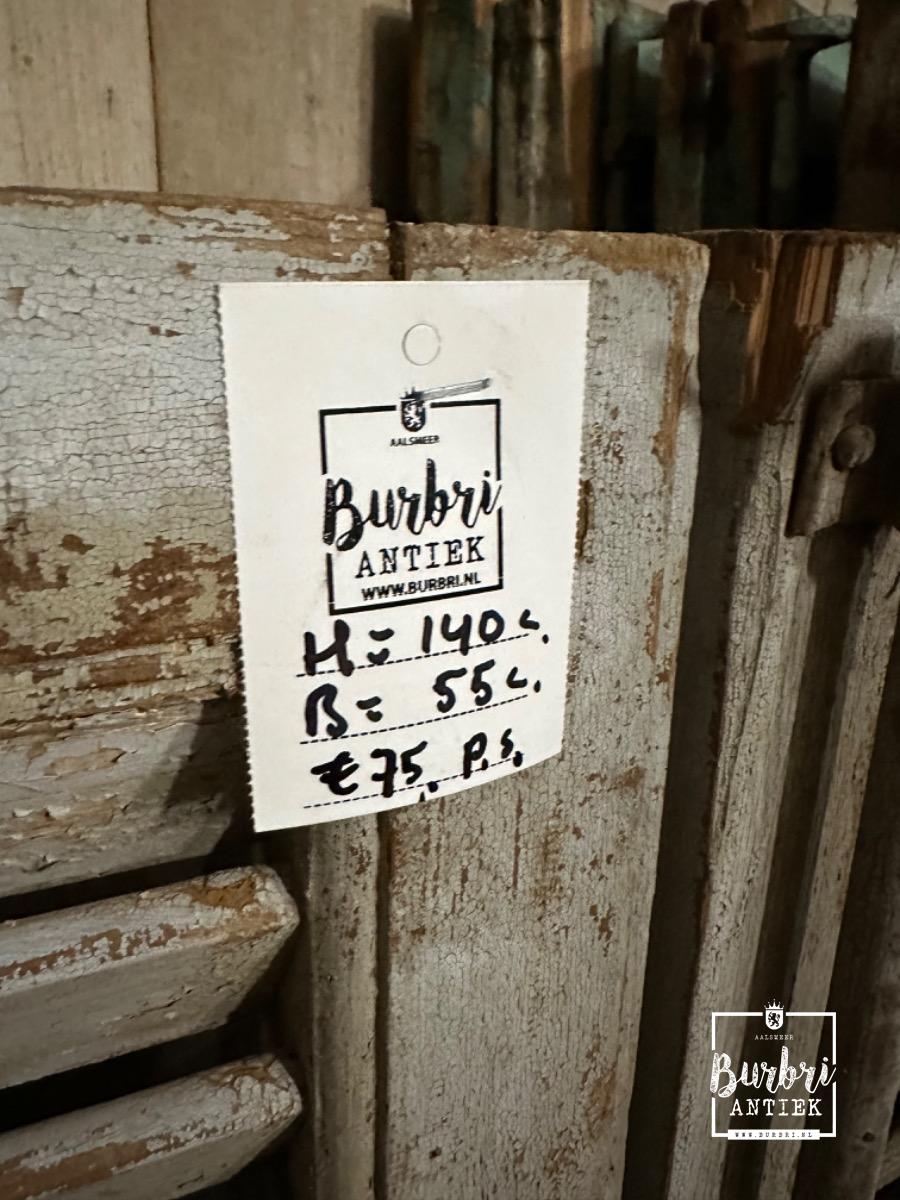 AALSMEER
Burbri
ANTIEK
WWW.BURBRI.NL
H= 140 c.
B= 55 c.
€75, P.S.
AALSMEER
Burbri
ANTIEK
WWW.BURBRI.NL